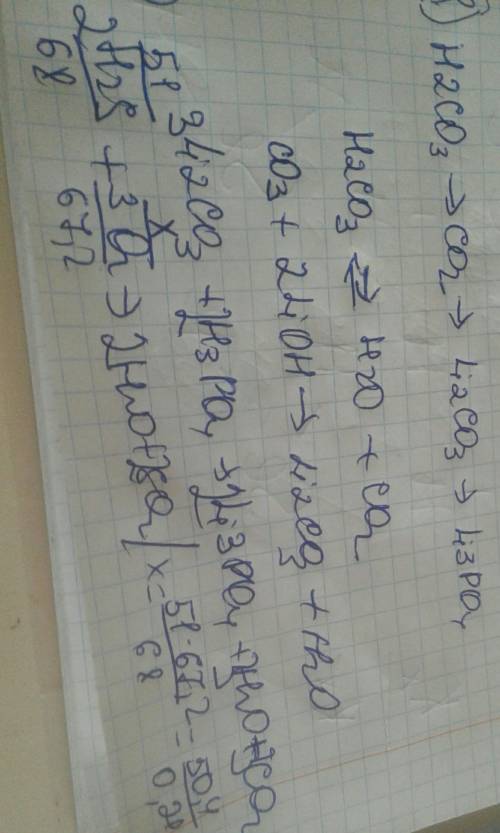 H2CO3 → CO2 → Li2CO3 → Li3PO4
H2CO3 ⇄ H2O + CO2
CO3 + 2LiOH → Li2CO3 + H2O
3Li2CO3 + 2H3PO4 → 2Li3PO4 + 3H2O + 3CO2
51 x
2H2S + 3O2 → 2H2O + 2SO2 | x = 51 · 67,2 = 50,4
68 67,2 68